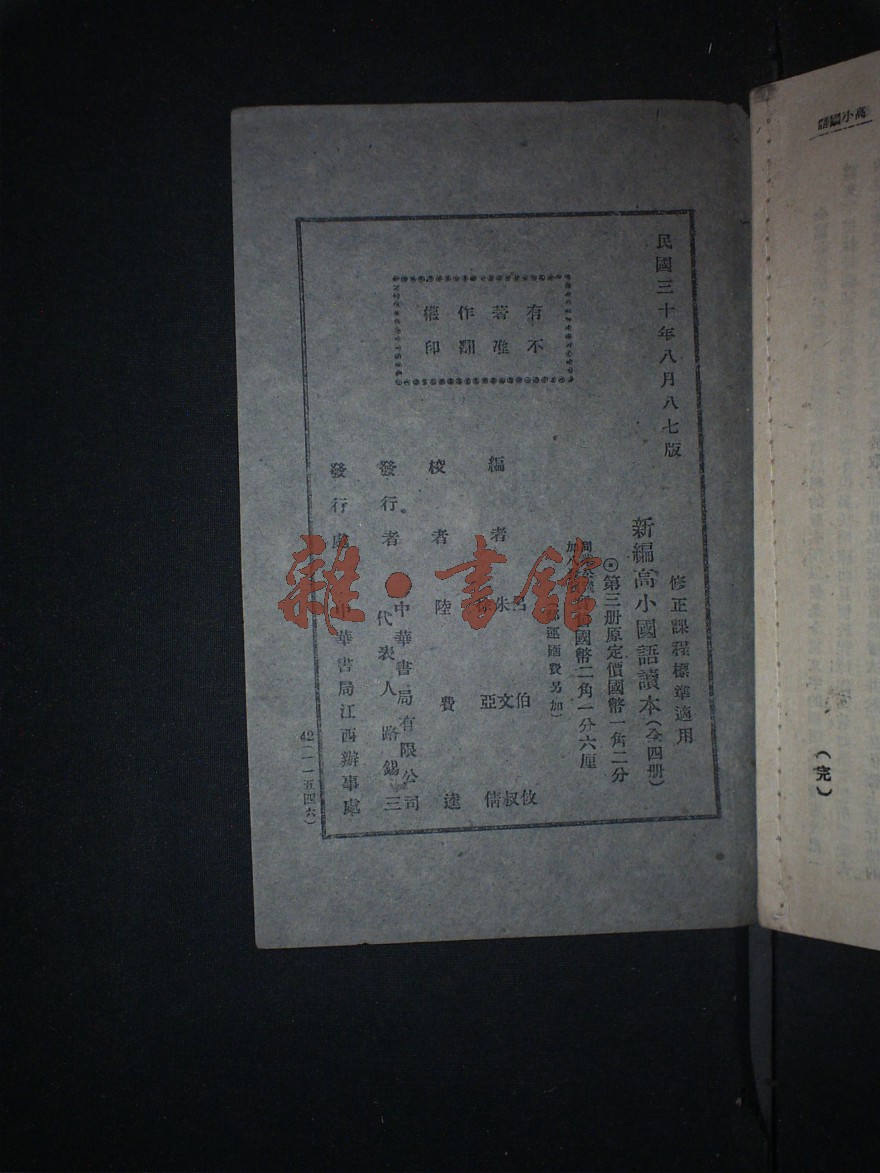 民國三十年八月八七版
修正課程標準適用
新編高小國語讀本(全四册)
◉第三册原定價國幣一角二分
國幣二角一分六厘
運匯費另加)
有著作權
不准翻印
編者 呂伯攸 朱文叔 徐亞倩
校者 陸費逵
發行者 中華書局有限公司
代表人路錫三
發行處 中華書局江西辦事處
42(一一五四六)
雜·書館
高小國語
(完)